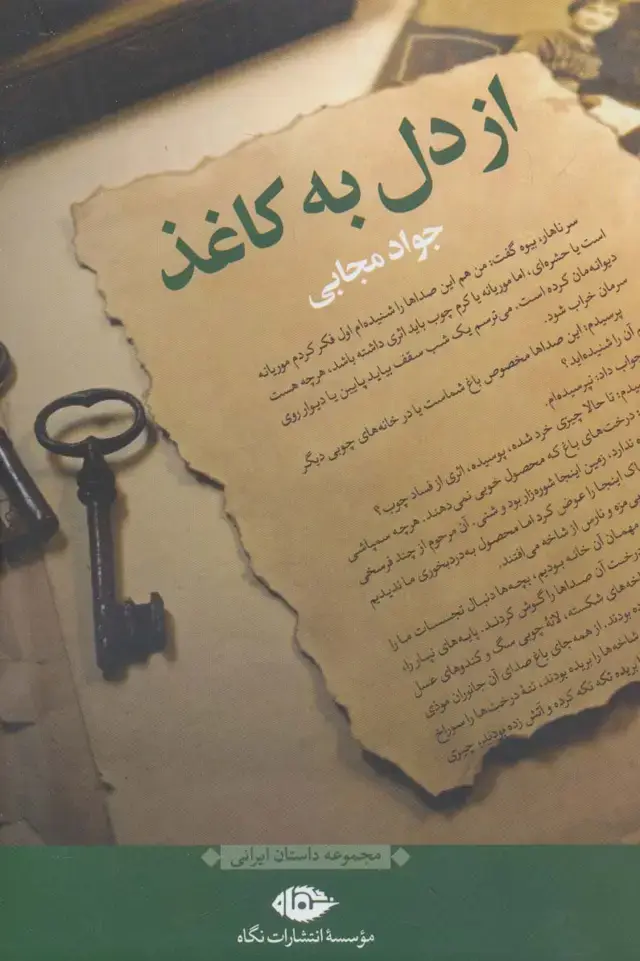 از دل به کاغذ
جواد مجابی
سر ناهار، بیوه گفت: من هم این صداها را شنیده‌ام اول فکر کردم موریانه
است یا حشره‌ای، اما موریانه یا کرم چوب باید اثری داشته باشد، هرچه هست
دیوانه‌مان کرده است، می‌ترسم یک شب سقف بیاید پایین یا دیوار روی
سرمان خراب شود.
پرسیدم: این صداها مخصوص باغ شماست یا در خانه‌های چوبی دیگر
آن را شنیده‌اید؟
جواب داد: نپرسیده‌ام.
تا حالا چیزی خرد شده، پوسیده، اثری از فساد چوب؟
درخت‌های باغ که محصول خوبی نمی‌دهند. هرچه سمپاشی
ندارد، زمین اینجا شوره‌زار بود و شنی. آن مرحوم از چند فرسخی
اینجا را عوض کرد اما محصول به‌دردبخوری ما ندیدیم
مزه و نارس از شاخه می‌افتند.
مهمان آن خانه بودیم، بچه‌ها دنبال تجسسات ما را
درخت آن صداها را گوش کردند. پایه‌های نپار را،
شکسته، لانهٔ چوبی سگ و کندوهای عسل
بودند. از همه‌جای باغ صدای آن جانوران موذی
شاخه‌ها را بریده بودند، تنهٔ درخت‌ها را سوراخ
بریده تکه تکه کرده و آتش زده بودند، چیزی
مجموعه داستان ایرانی
نگاه
مؤسسهٔ انتشارات نگاه